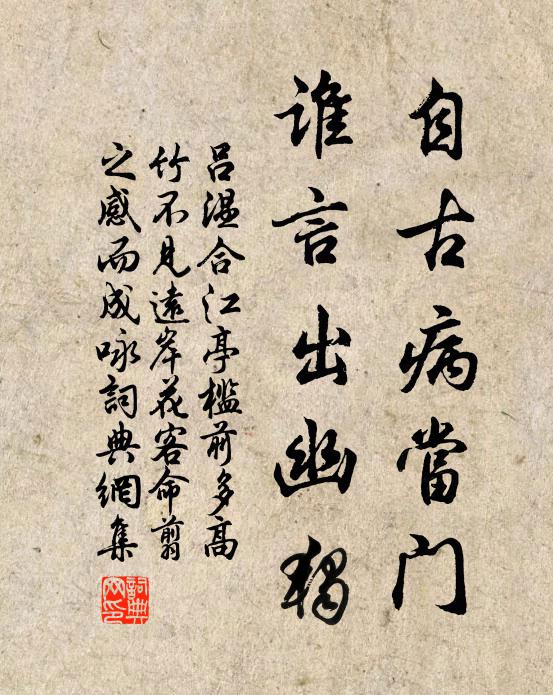 自古病當門
谁言出幽獨
呂溫合江亭檻前多高
竹不見遠岸花客命翦
之感而成咏詞典網集
詞典網印